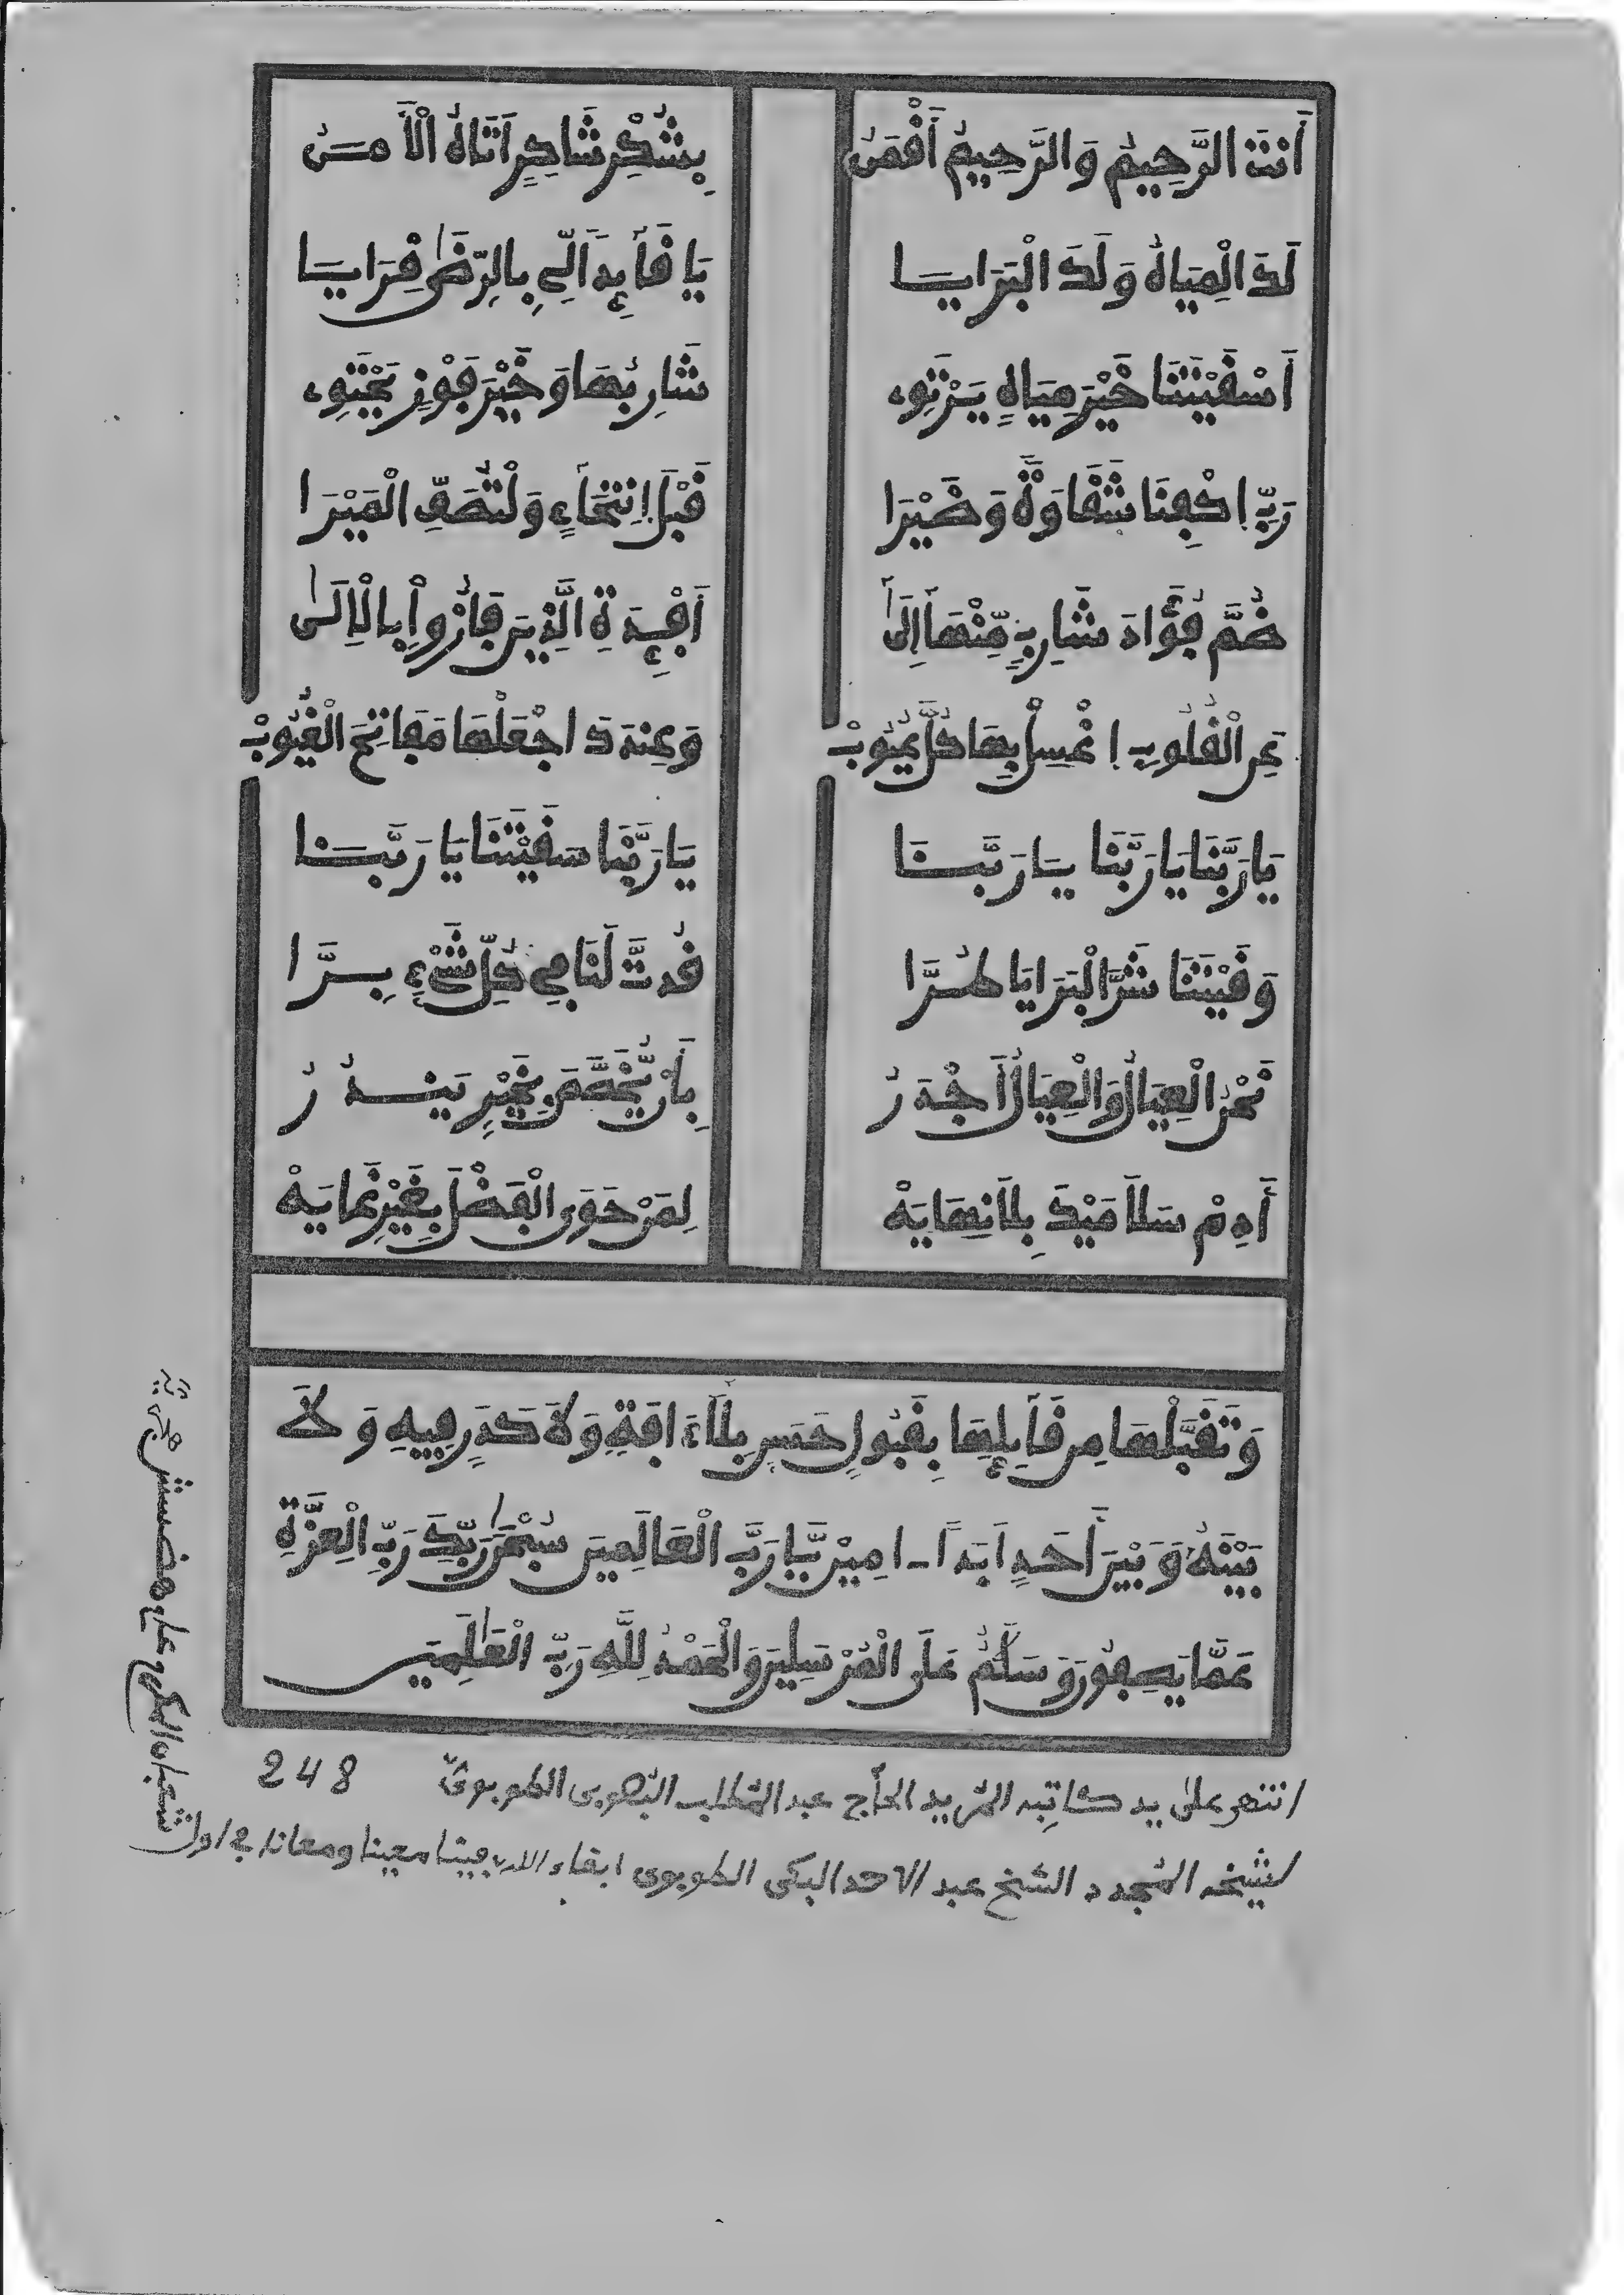 أَنتَ الرَّحِيمُ وَالرَّحِيمُ أَقْمَنُ بِشُكْرِ شَاكِرٍ أَتَاهُ الْأَمْنُ
لَكَ الْمِيَاهُ وَلَكَ الْبَرَايَا يَا قَائِدًا لِّي بِالرِّضَى قِرَايَا
أَسْقَيْتَنَا خَيْرَ مِيَاهٍ يَرْتَوِي شَارِبُهَا وَخَيْرَ فَوْزٍ يَحْتَوِي
رَبِّ اكْفِنَا شَقَاوَةً وَضَيْرَا قَبْلَ انْتِحَاءٍ وَلْتُصَفِّ الْمَيْرَا
ضُمَّ فُؤَادَ شَارِبٍ مِّنْهَا إِلَى أَفْئِدَةِ الَّذِينَ فَازُوا بِالْإِلَى
عَنِ الْقُلُوبِ اغْسِلْ بِهَا كُلَّ عُيُوبْ وَعِندَكَ اجْعَلْهَا مَفَاتِحَ الْغُيُوبْ
يَا رَبَّنَا يَا رَبَّنَا يَا رَبَّنَا يَا رَبَّنَا سَقَيْتَنَا يَا رَبَّنَا
وَقَيْتَنَا شَرَّ الْبَرَايَا طُرَّا قُدتَّ لَنَا مِن كُلِّ شَيْءٍ بِرَّا
نَحْنُ الْعِيَالُ وَالْعِيَالُ أَجْدَرُ بِأَن يُّخَصَّصَ بِخَيْرٍ يَنْدُرُ
أَدِمْ سَلَامَيْكَ بِلَا نِهَايَهْ لِمَنْ حَوَى الْفَضْلَ بِغَيْرِ غَايَهْ
وَتَقَبَّلْهَا مِن قَائِلِهَا بِقَبُولٍ حَسَنٍ بِلَا ءَافَةٍ وَلَا كَدَرٍ فِيهِ وَلَا
بَيْنَهُ وَبَيْنَ أَحَدٍ أَبَدًا ـ امِينْ يَّا رَبَّ الْعَالَمِينَ سُبْحَٰنَ رَبِّكَ رَبِّ الْعِزَّةِ
عَمَّا يَصِفُونَ وَسَلَٰمٌ عَلَى الْمُرْسَلِينَ وَالْحَمْدُ لِلَّهِ رَبِّ الْعَٰلَمِينَ
انتهى على يد كاتبه المريد الحاج عبد المطلب التهوبى الطوبوى 248
لشيخه المجدد الشيخ عبد الاحد البكى الطوبوى ابقاه الله فينا معينا ومعانا في اول
شعبان المكرم